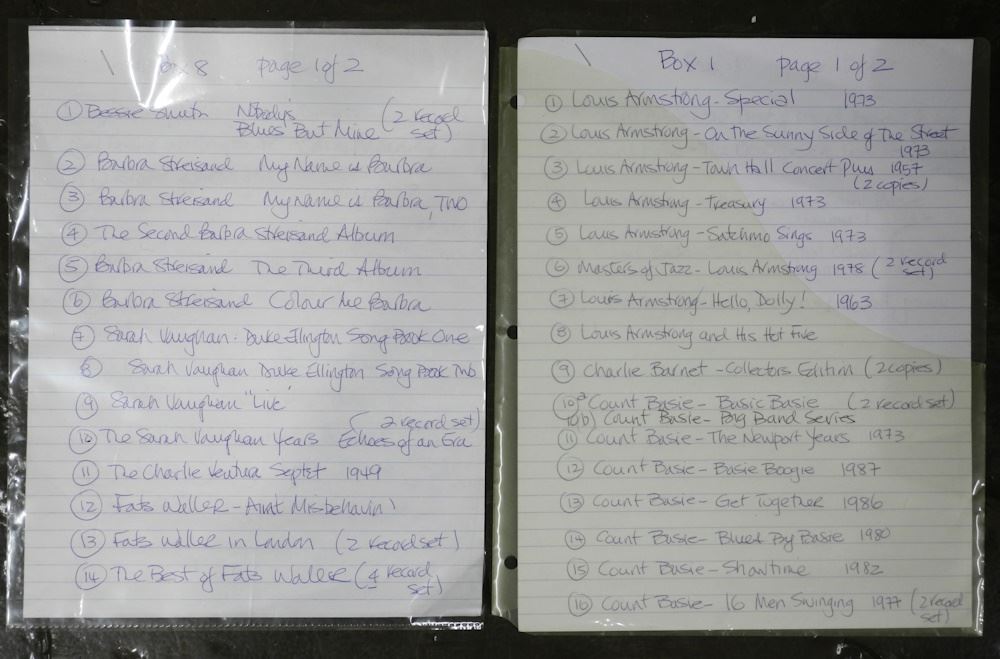 Box 8 page 1 of 2
① Bessie Smith Nobody's (2 record
Blues But Mine set)
② Barbra Streisand My Name is Barbra
③ Barbra Streisand My Name is Barbra, TWO
④ The Second Barbra Streisand Album
⑤ Barbra Streisand The Third Album
⑥ Barbra Streisand Colour Me Barbra
⑦ Sarah Vaughan: Duke Ellington Song Book One
⑧ Sarah Vaughan Duke Ellington Song Book Two
⑨ Sarah Vaughan "Live"
(2 record set)
⑩ The Sarah Vaughan Years Echoes of an Era
⑪ The Charlie Ventura Septet 1949
⑫ Fats Waller - Aint Misbehavin'
⑬ Fats Waller in London (2 record set)
⑭ The Best of Fats Waller (4 record
set)
Box 1 page 1 of 2
① Louis Armstrong - Special 1973
② Louis Armstrong - On the Sunny Side of The Street
1973
③ Louis Armstrong - Town Hall Concert Plus 1957
(2 copies)
④ Louis Armstrong - Treasury 1973
⑤ Louis Armstrong - Satchmo Sings 1973
⑥ Masters of Jazz - Louis Armstrong 1978 (2 record
set)
⑦ Louis Armstrong - Hello, Dolly! 1963
⑧ Louis Armstrong and His Hot Five
⑨ Charlie Barnet - Collectors Edition (2 copies)
10a Count Basie - Basic Basie (2 record set)
10b) Count Basie - Big Band Series
⑪ Count Basie - The Newport Years 1973
⑫ Count Basie - Basie Boogie 1987
⑬ Count Basie - Get Together 1986
⑭ Count Basie - Big Basie 1980
⑮ Count Basie - Showtime 1982
⑯ Count Basie - 16 Men Swinging 1977 (2 record
set)